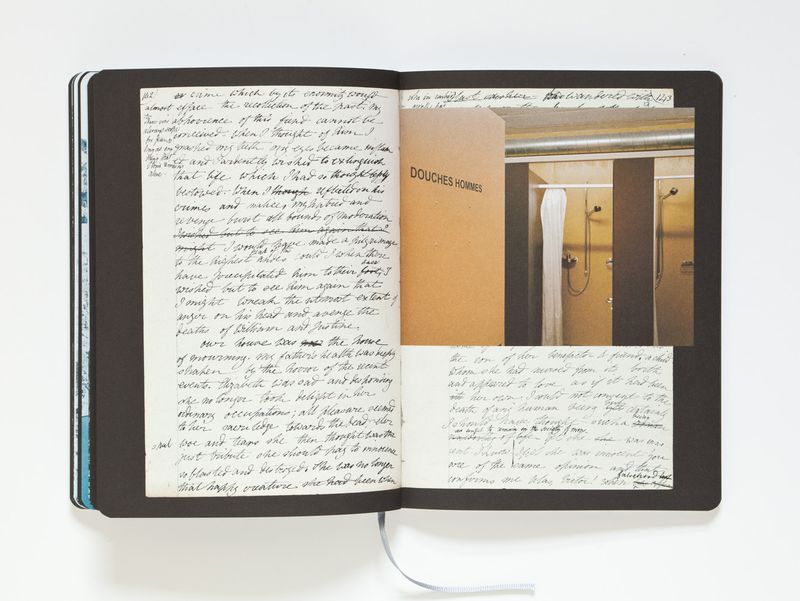 162
crime which by its enormity would
almost efface the recollection of the past. my
abhorrence of this fiend cannot be
conceived. When I thought of him I
gnashed my teeth my eyes became
and I ardently wished to extinguish
that life which I had so
bestowed. When I though reflected on his
crimes and malice my hatred and
revenge burst all bounds of moderation
I wished but to see him again that I
might I would have made a pilgrimage
peak of the
to the highest andes could I when there
base
have precipitated him to their foot; I
wished but to see him again that
I might wreak the utmost extent of
anger on his head and avenge the
deaths of William and Justine.
our house was the house
of mourning. my father's health was deeply
shaken by the horror of the recent
events. Elizabeth was sad and desponding
she no longer took delight in her
ordinary occupations; all pleasure seemed
to her sacrilege towards the dead
woe and tears she then thought was the
just tribute she should pay to innocence
so blasted and destroyed. She was no longer
that happy creature she had been when
163
DOUCHES HOMMES
the son of her benefactor & friend, a child
whom she had nursed from its birth
and appeared to love as if it had been
her own. I would not consent to the
death of any human being but certainly
I should have thought such a
she was
I feel she was innocent you
are of the same opinion and that
confirms me Alas, Victor! when